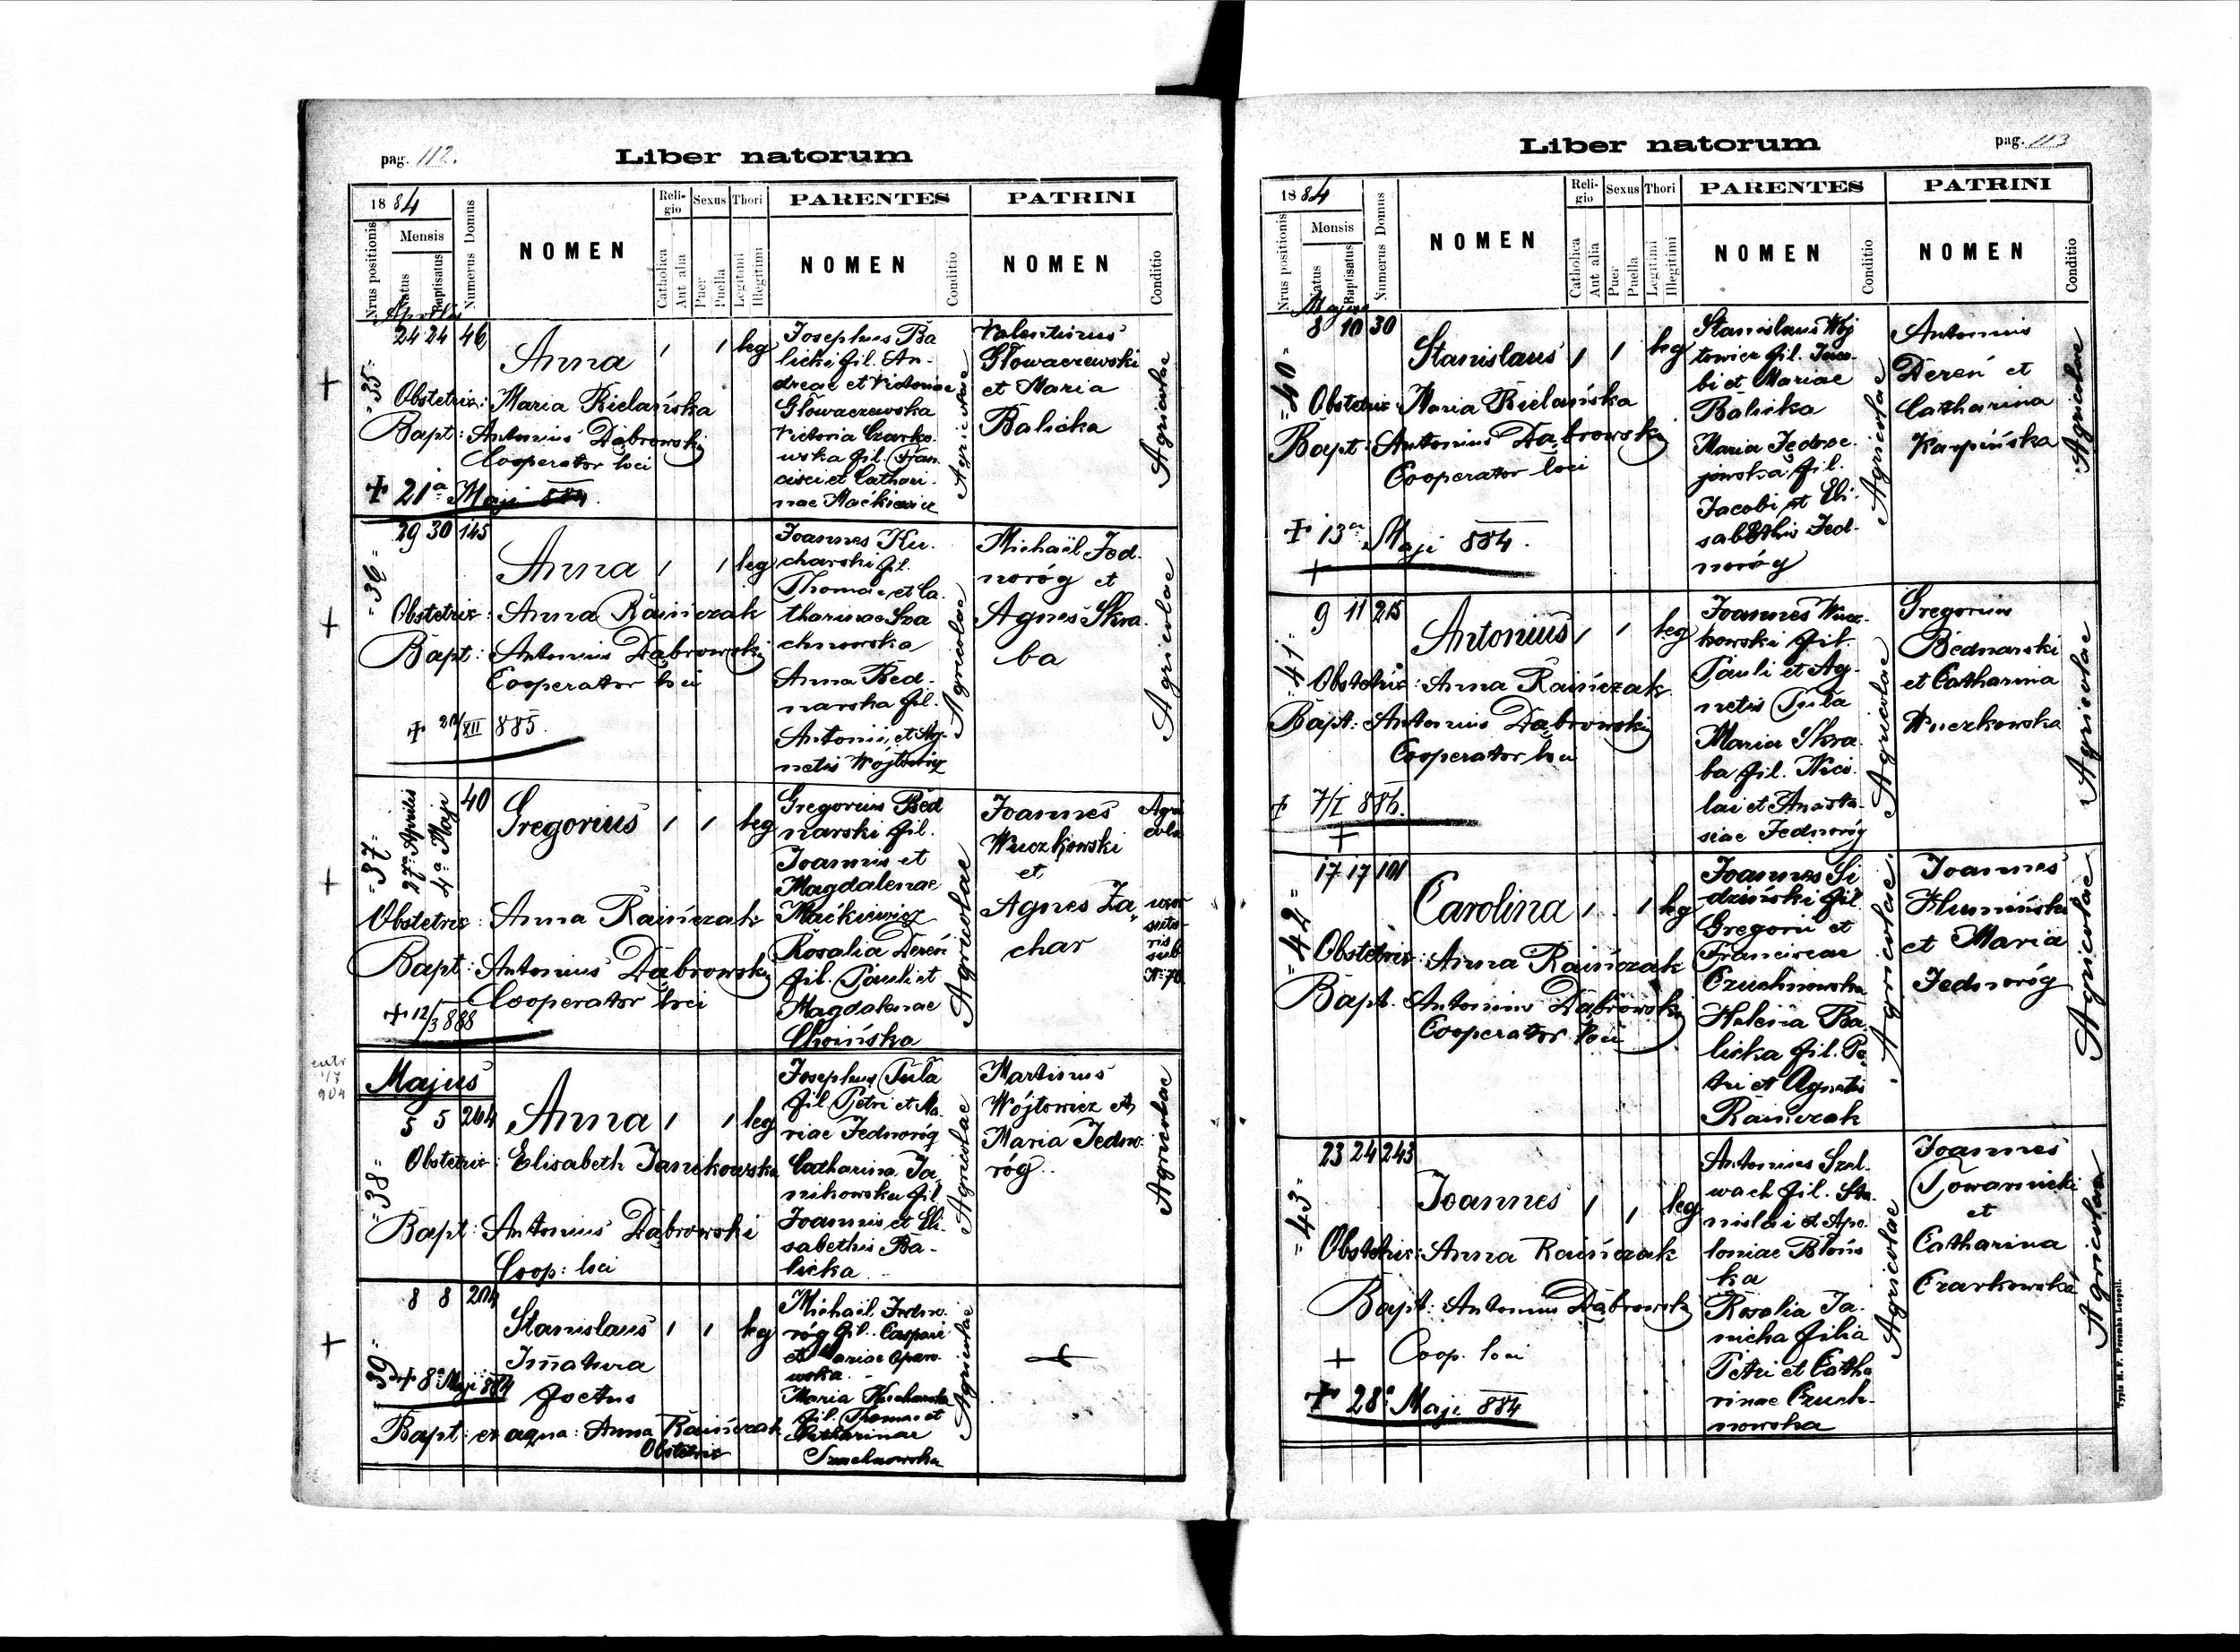 pag. 112.
Liber natorum
1884
Nrus positionis
Mensis
Natus
Baptisatus
Numerus Domus
NOMEN
Reli-
gio
Catholica
Aut alia
Sexus
Puer
Puella
Thori
Legitimi
Illegitimi
PARENTES
NOMEN
Conditio
PATRINI
NOMEN
Conditio
Aprilis
=35=
24 24 46
Anna
1 1 leg
Obstetrix: Maria Bielańska
Bapt: Antonius Dąbrowski
Cooperator loci
+ 21a Maji 884.
Josephus Ba
licki fil. An-
dreae et Victoriae
Głowaczewska
Victoria Czarko
wska fil. Fran
cisci et Cathari-
nae Maćkiewicz
Agricolae
Valentinus
Głowaczewski
et Maria
Balicka
Agricolae
=36=
29 30 145
Anna
1 1 leg
Obstetrix: Anna Raińczak
Bapt: Antonius Dąbrowski
Cooperator loci
+ /XII 885.
Joannes Ku-
charski fil.
Thomae et Ca-
tharinae Sza
chnowska
Anna Bed-
narska fil.
Antonii et Ag-
netis Wójtowicz
Agricolae
Michaël Jed-
noróg et
Agnes Skra-
ba
Agricolae
=37=
27ma Aprilis
4a Maji
40
Gregorius
1 1 leg
Obstetrix: Anna Raińczak
Bapt: Antonius Dąbrowski
Cooperator loci
+ 12/3 888
Gregorius Bed
narski fil.
Joannis et
Magdalenae
Maćkiewicz
Rosalia Dereń
fil. Pauli et
Magdalenae
Choińska
Agricolae
Joannes
Wuczkowski
et
Agnes Za-
char
Agri
cola
uxor
suto-
ris
sub
N 70
Majus
=38=
5 5 204
Anna
1 1 leg
Obstetrix: Elisabeth Janikowska
Bapt: Antonius Dąbrowski
Coop: loci
Josephus Tuła
fil. Petri et Ma-
riae Jednoróg
Catharina Ja-
nikowska fil.
Joannis et Eli-
sabethis Ba-
licka
Agricolae
Martinus
Wójtowicz et
Maria Jedno-
róg.
Agricolae
=39=
8 8 204
Stanislaus
Imatura
foetus
1 1 leg
+ 8a Maji 884
Bapt: ex aqua: Anna Raińczak
Obstetrix
Michaël Jedno-
róg fil. Caspari
et Mariae
wska
Maria Kucharska
fil. Thomae et
Catharinae
Szachnowska
Agricolae
Liber natorum
pag. 113
1884
Nrus positionis
Mensis
Natus
Baptisatus
Numerus Domus
NOMEN
Reli-
gio
Catholica
Aut alia
Sexus
Puer
Puella
Thori
Legitimi
Illegitimi
PARENTES
NOMEN
Conditio
PATRINI
NOMEN
Conditio
Majus
=40=
8 10 30
Stanislaus
1 1 leg
Obstetrix: Maria Bielańska
Bapt: Antonius Dąbrowski
Cooperator loci
+ 13a Maji 884.
Stanislaus Wój
towicz fil. Jaco-
bi et Mariae
Balicka
Maria Jędrze-
jowska fil.
Jacobi et Eli-
sabethis Jed-
noróg
Agricolae
Antonius
Dereń et
Catharina
Karpińska
Agricolae
=41=
9 11 215
Antonius
1 1 leg
Obstetrix: Anna Raińczak
Bapt: Antonius Dąbrowski
Cooperator loci
+ 7/I 886.
Joannes Wucz-
kowski fil.
Pauli et Ag-
netis Tuła
Maria Skra-
ba fil. Nico-
lai et Anasta-
siae Jednoróg
Agricolae
Gregorius
Bednarski
et Catharina
Wuczkowska
Agricolae
=42=
17 17 101
Carolina
1 1 leg
Obstetrix: Anna Raińczak
Bapt. Antonius Dąbrowski
Cooperator loci
Joannes Si
dziński fil.
Gregorii et
Franciscae
Czuchnowska
Helena Ba-
licka fil. Pe-
tri et Agnetis
Raińczak
Agricolae
Joannes
Humiński
et Maria
Jednoróg
Agricolae
=43=
23 24 243
Joannes
1 1 leg
Obstetrix: Anna Raińczak
Bapt: Antonius Dąbrowski
Coop. loci
+ 28a Maji 884
Antonius Szel-
wach fil. Sta-
nislai et Apo-
loniae Błońs
ka
Rosalia Ja-
nicha filia
Petri et Catha
rinae Czuch-
nowska
Agricolae
Joannes
Towarnicki
et
Catharina
Czarkowska
Agricolae